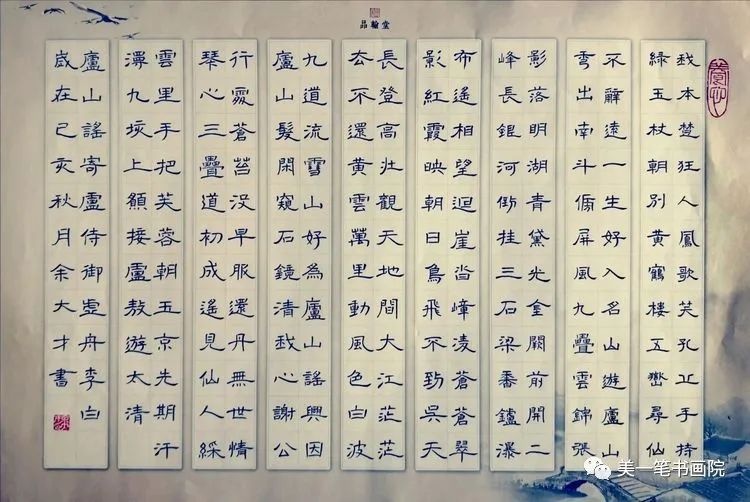 品翰堂
我本楚狂人鳳歌笑孔丘手持
綠玉杖朝別黃鶴樓五嶽尋仙
不辭遠一生好入名山遊廬山
秀出南斗傍屏風九疊雲錦張
影落明湖青黛光金闕前開二
峰長銀河倒挂三石梁香鑪瀑
布遙相望迴崖沓嶂凌蒼蒼翠
影紅霞映朝日鳥飛不到吳天
長登高壯觀天地間大江茫茫
去不還黃雲萬里動風色白波
九道流雪山好為廬山謠興因
廬山髮閑窺石鏡清我心謝公
行處蒼苔沒早服還丹無世情
琴心三疊道初成遙見仙人綵
雲里手把芙蓉朝玉京先期汗
漫九垓上願接盧敖遊太清
廬山謠寄盧侍御虛舟李白
歲在己亥秋月余大才書
美一笔书画院